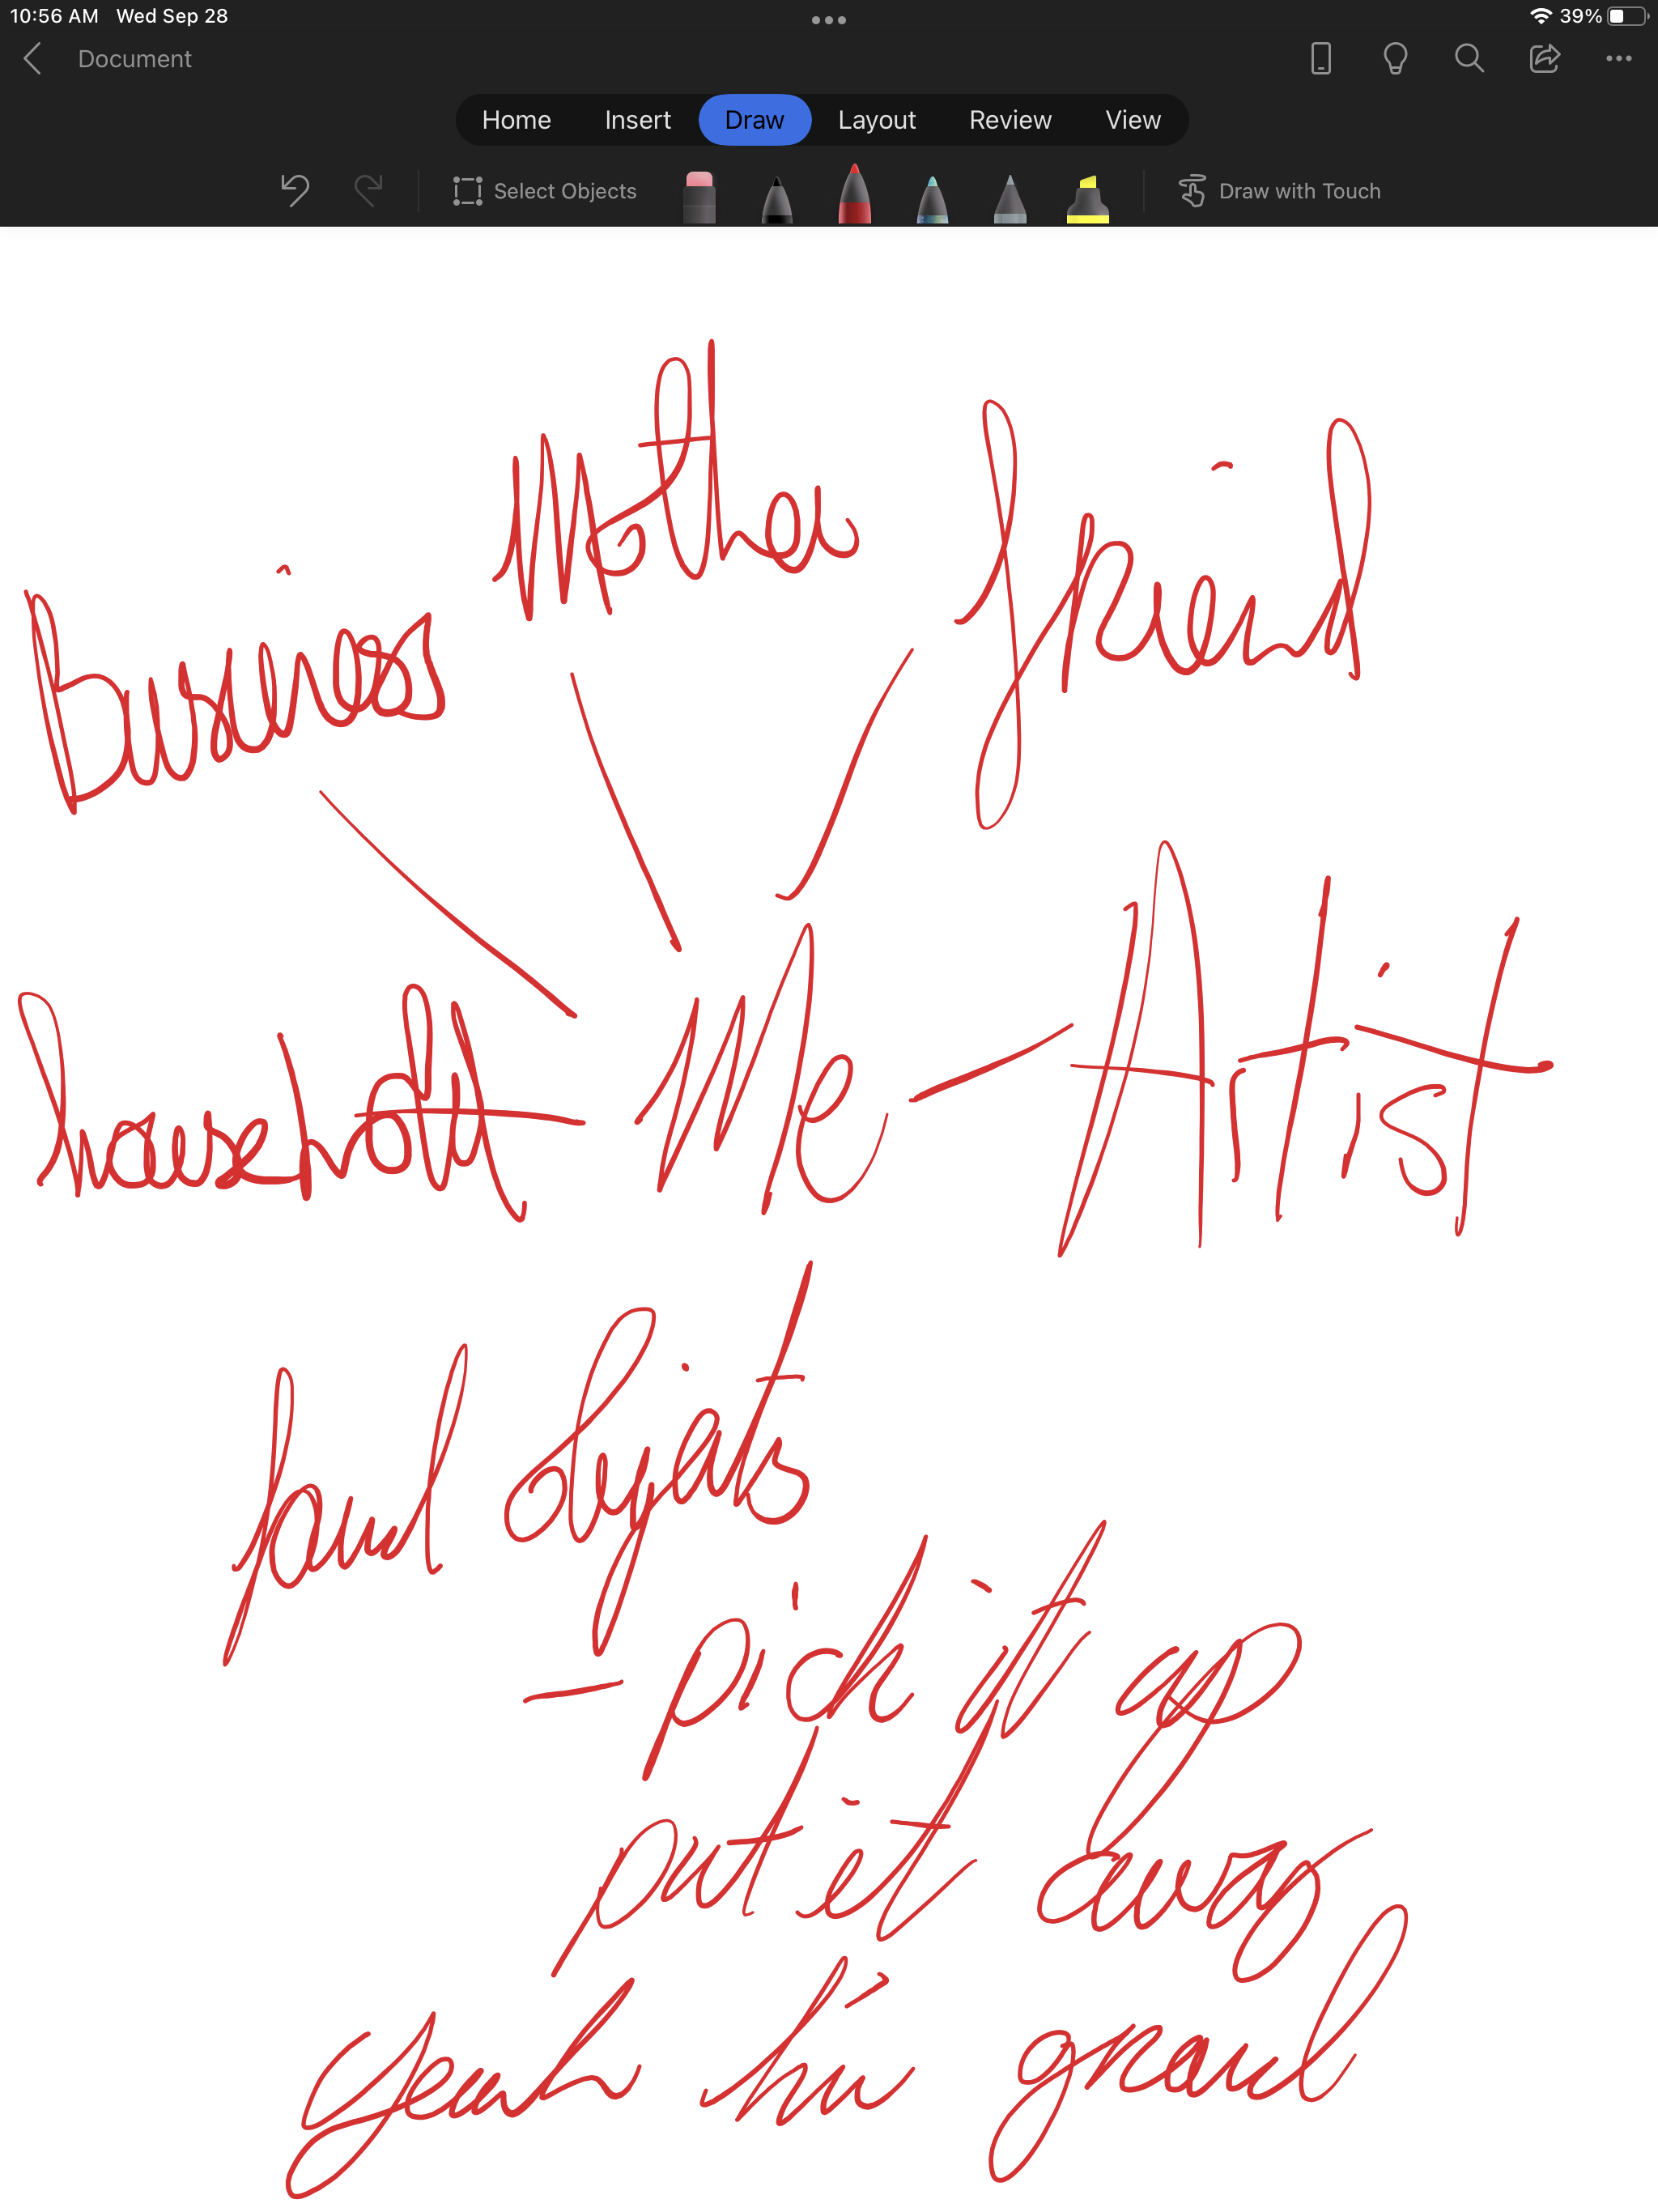 10:56 AM Wed Sep 28
39%
Document
Home Insert Draw Layout Review View
Select Objects
Draw with Touch
Mother
friend
business
household
Me
Artist
pick it up
put it away